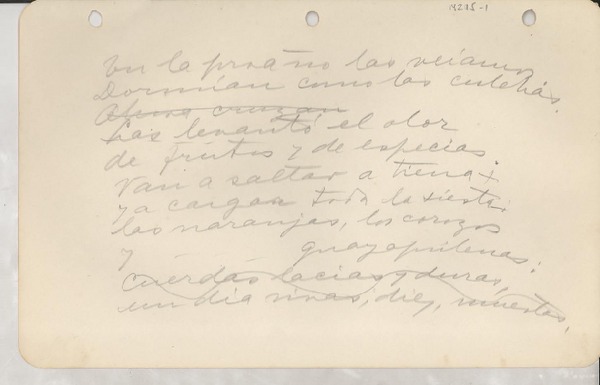 14205-1
En la proa no las veíamos
Dormían como las culebras.
Afuera cruzan
Las levantó el olor
de frutos y de especias.
Van a saltar a tierra
ya cargar toda la siesta
las naranjas, los corozos
y guayaquilenas.
Cuerdas lacias y duras,
un día vivas, diez, muertas.